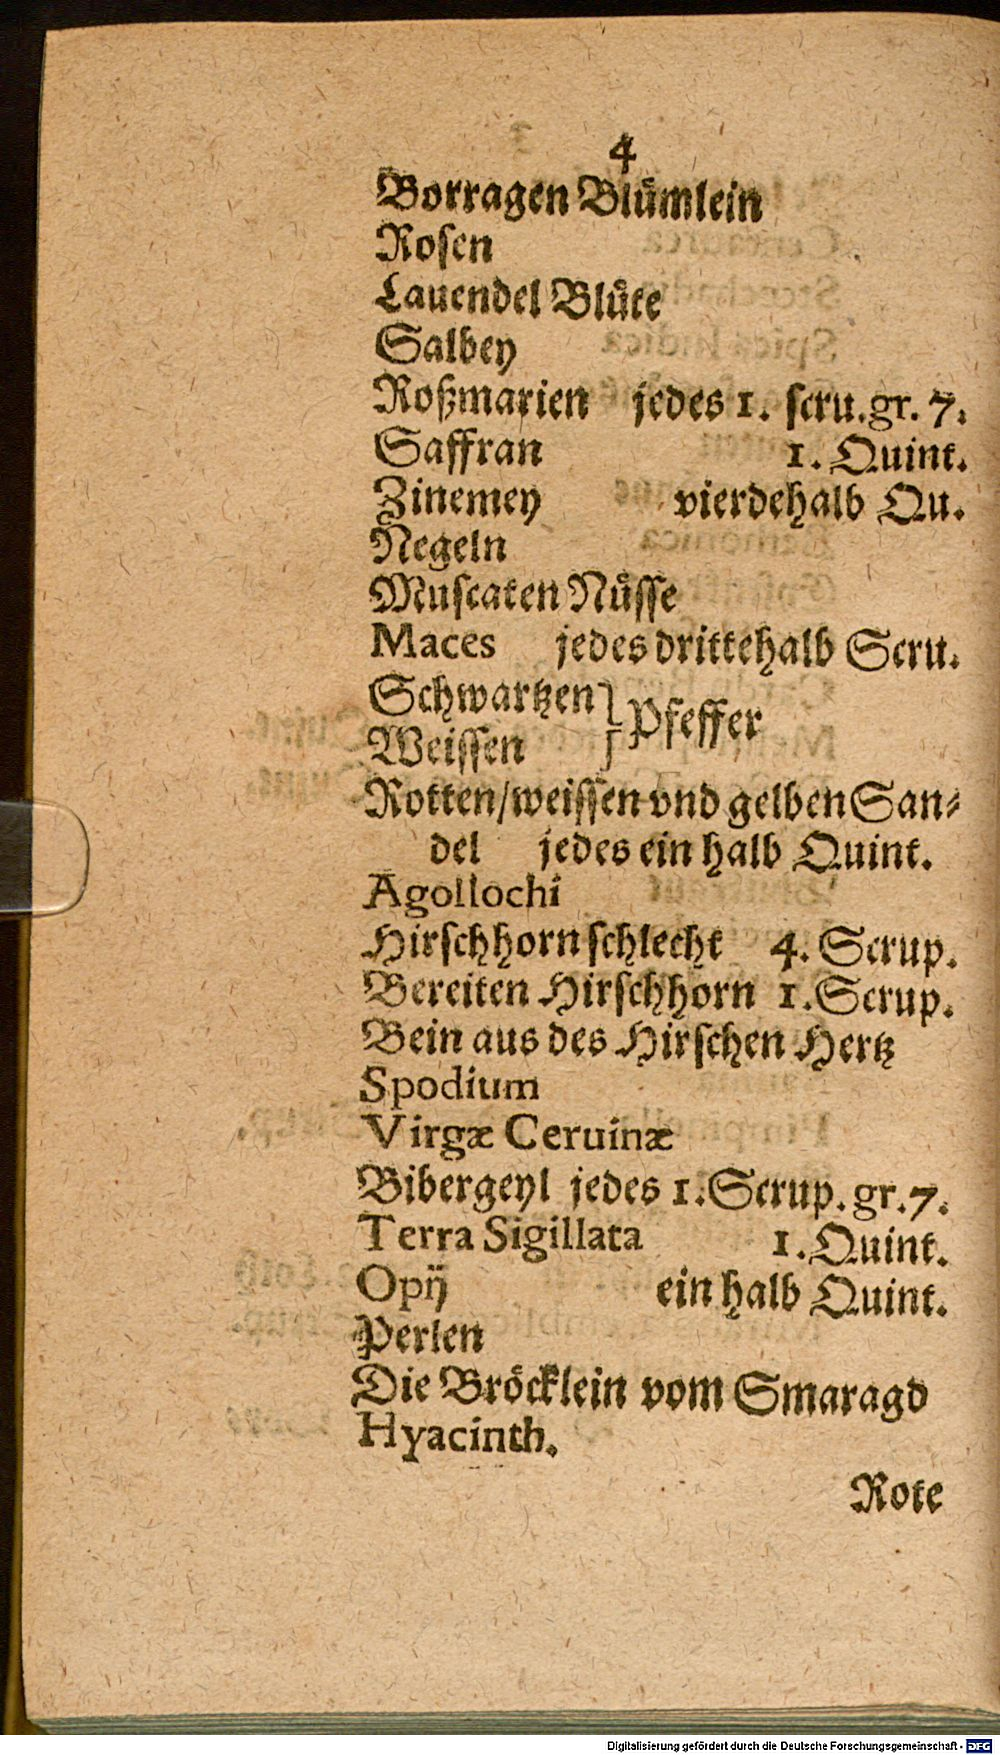 4
Borragen Blümlein
Rosen
Lauendel Blüte
Salbey
Roßmarien jedes 1. scru. gr. 7.
Saffran 1. Quint.
Zinemey vierdehalb Qu.
Negeln
Muscaten Nüsse
Maces jedes drittehalb Scru.
Schwartzen
Weissen } Pfeffer
Rotten/weissen vnd gelben San-
del jedes ein halb Quint.
Agollochi
Hirschhorn schlecht 4. Scrup.
Bereiten Hirschhorn 1. Scrup.
Bein aus des Hirschen Hertz
Spodium
Virgæ Ceruinæ
Bibergeyl jedes 1. Scrup. gr. 7.
Terra Sigillata 1. Quint.
Opij ein halb Quint.
Perlen
Die Bröcklein vom Smaragd
Hyacinth.
Rote
Digitalisierung gefördert durch die Deutsche Forschungsgemeinschaft - DFG